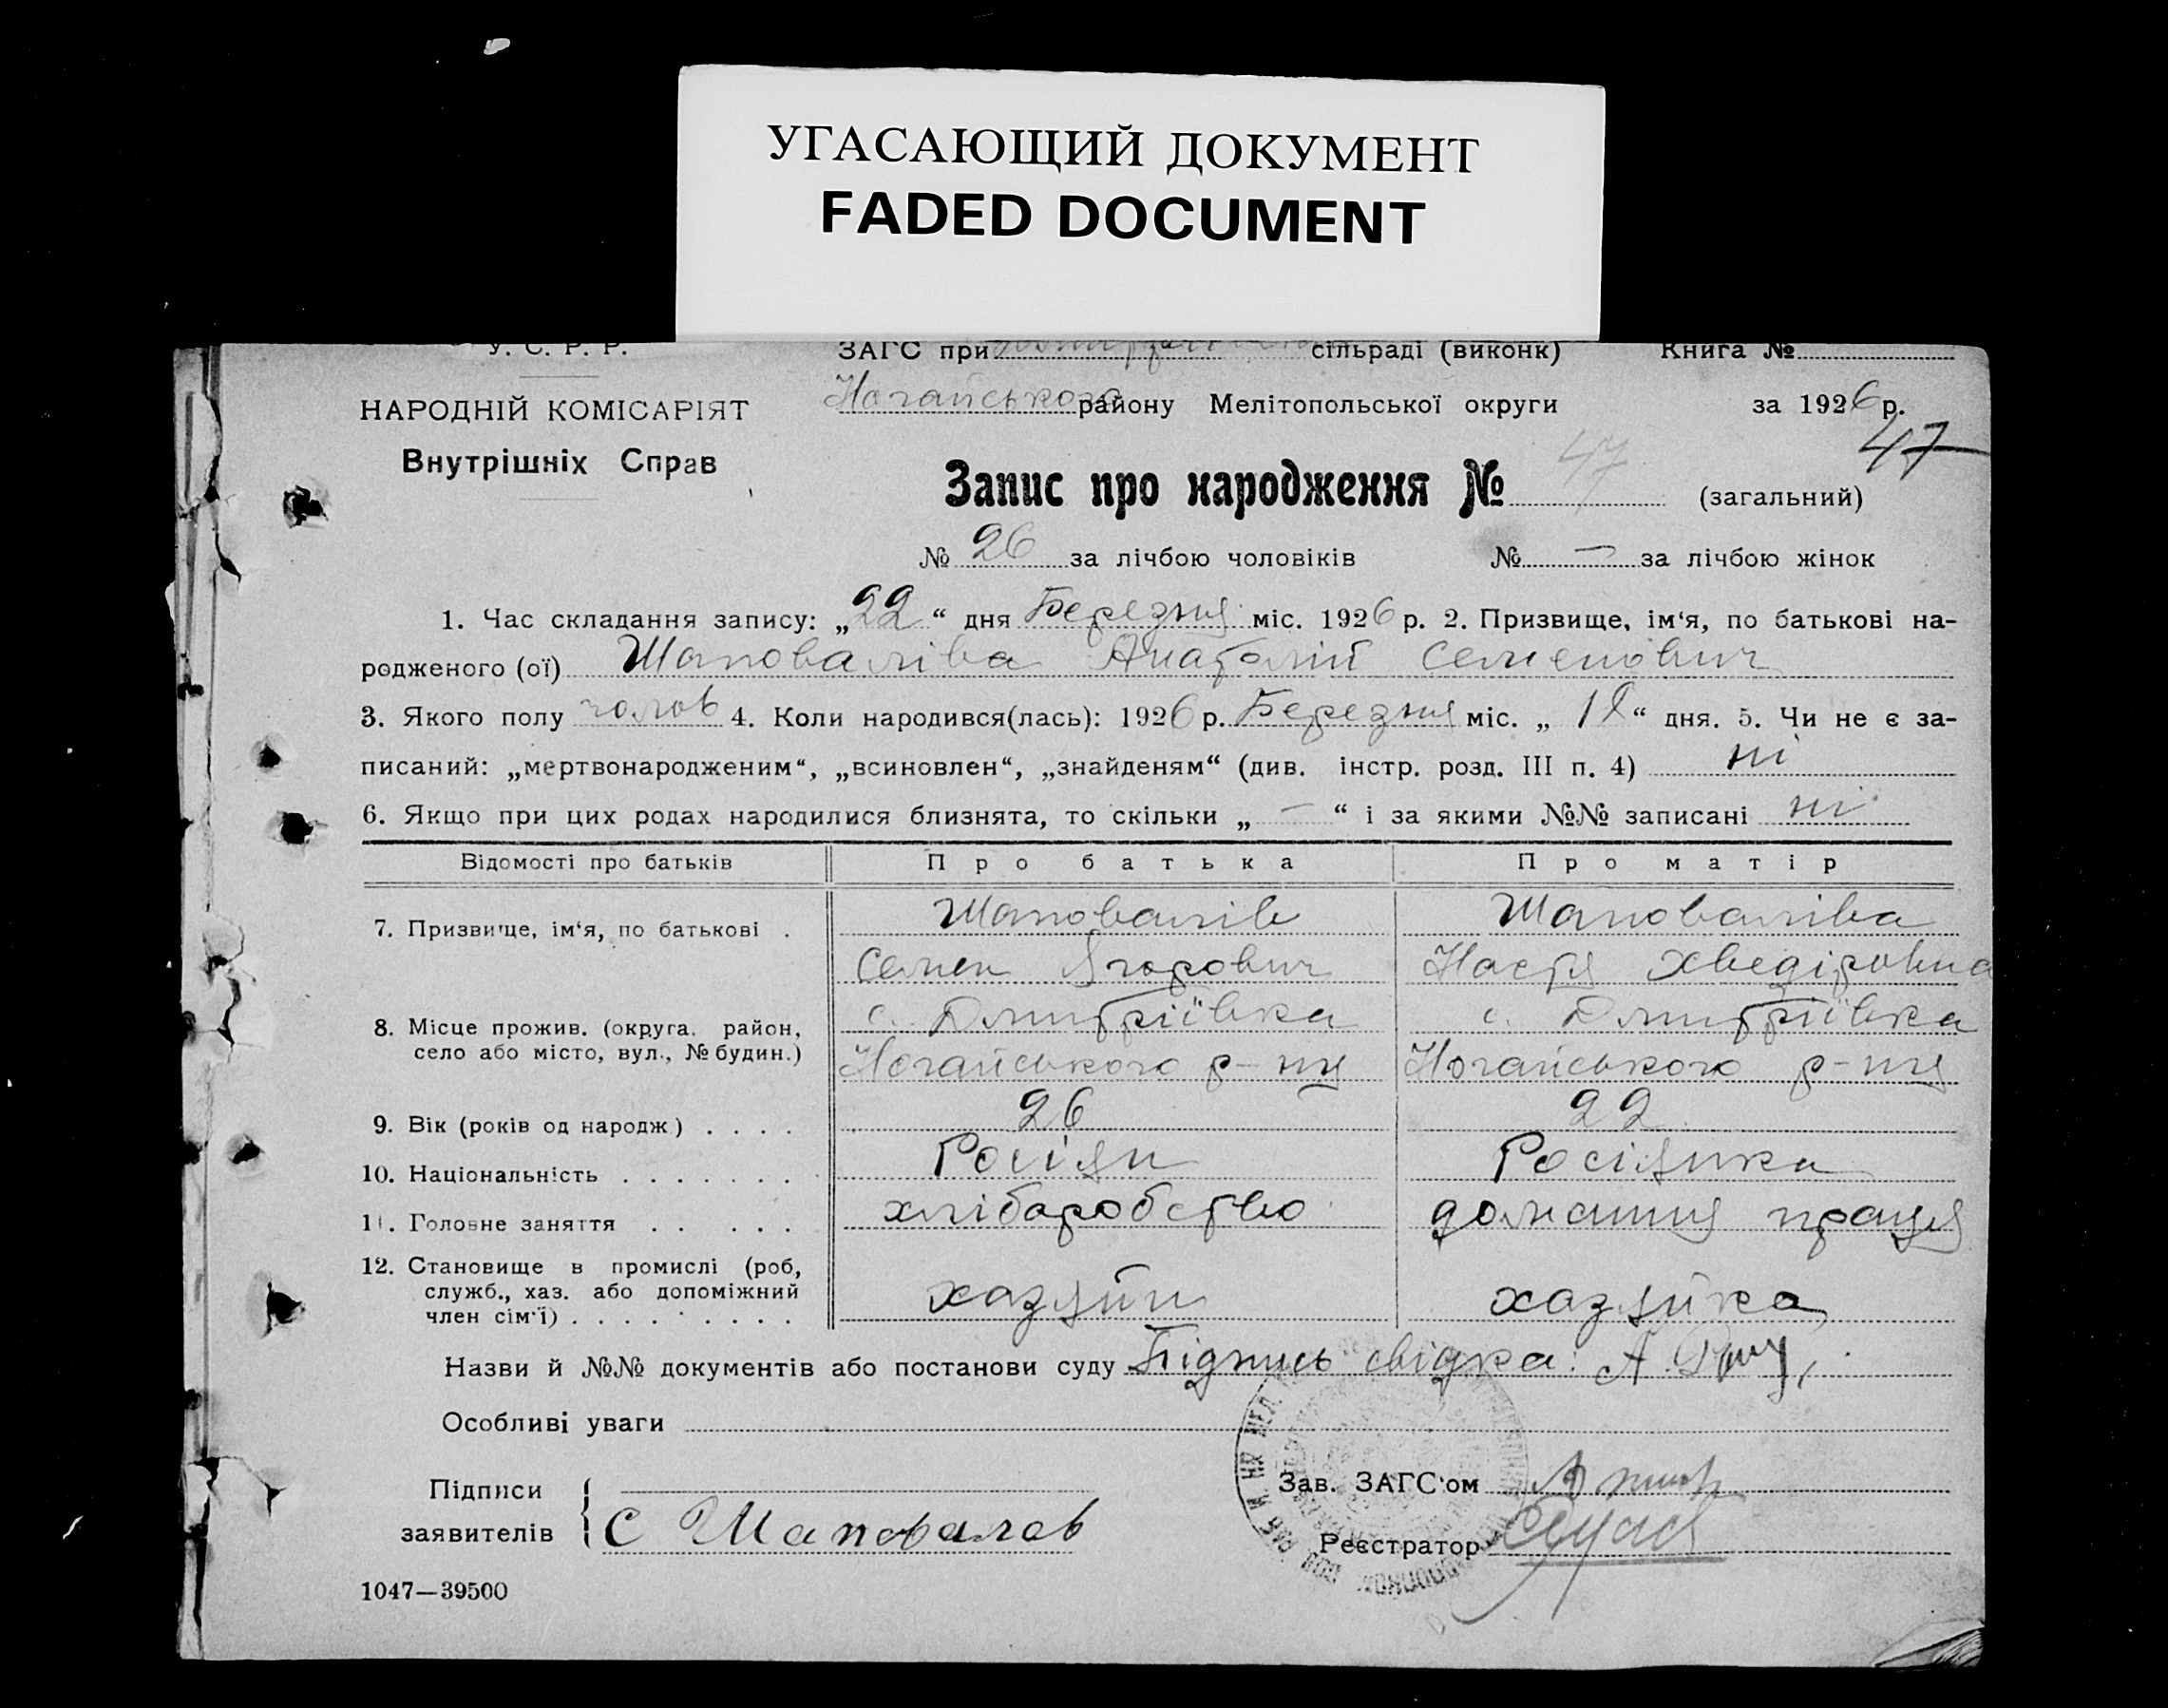 УГАСАЮЩИЙ ДОКУМЕНТ
FADED DOCUMENT
У. С. Р. Р.
ЗАГС при сільраді (виконк) Книга №
НАРОДНІЙ КОМІСАРІЯТ
Ногайського району Мелітопольської округи за 1926 р.
Внутрішніх Справ
47
Запис про народження № 47 (загальний)
№ 26 за лічбою чоловіків № — за лічбою жінок
1. Час складання запису: „22“ дня Березня міс. 1926 р. 2. Призвище, ім‘я, по батькові на-
родженого (ої) Шаповаліва Анатолій Семенович
3. Якого полу чолов 4. Коли народився(лась): 1926 р. Березня міс. „ “ дня. 5. Чи не є за-
писаний: „мертвонародженим“, „всиновлен“, „знайденям“ (див. інстр. розд. III п. 4) ні
6. Якщо при цих родах народилися близнята, то скільки „ — “ і за якими №№ записані ні
Відомості про батьків Про батька Про матір
7. Призвище, ім‘я, по батькові . Шаповалів Шаповаліва
Семен Ягорович Настя Хведіровна
8. Місце прожив. (округа. район, село або місто, вул., № будин.) с. Дмитріївка с. Дмитріївка
Ногайського р-ну Ногайського р-ну
9. Вік (років од народж) . . . . 26 22
10. Національність . . . . . . . Росіян Росіянка
11. Головне заняття . . . . . хліборобство домашня праця
12. Становище в промислі (роб, служб., хаз. або допоміжний член сім‘ї) . . . . . . . . . хазяйн хазяйка
Назви й №№ документів або постанови суду Підпись свідка: А.
Особливі уваги
Підписи
заявителів С Шаповалов
Зав. ЗАГС‘ом
Реєстратор
1047—39500